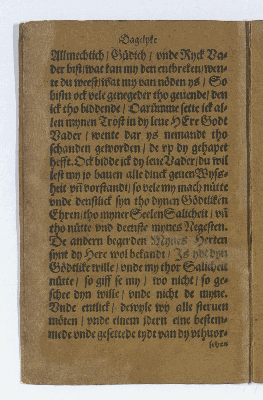 Dagelyke
Allmechtich / Güdich / vnde Ryck Va-
der bist / wat kan my den entbreken / wen-
te du weest / wat my van nöden ys / So
bistu ock vele geneγeder tho geuende / den
ick tho biddende / Darümme sette ick al-
len mynen Trost in dy leue HErr Godt
Vader / wente dar ys nemandt tho
schanden geworden / de vp dy gehapet
hefft. Ock bidde ick dy leue Vader / du wil
lest my jo bauen alle dinck geuen Wyss-
heit vñ vorstandt / so vele my mach nütte
vnde denstlick syn tho dynen Gödtliken
Ehren / tho myner Seelen Salicheit / vñ
tho nütte vnd deenste mynes Negesten.
De andern begerden Mynes Herten
synt dy Here wol bekandt / Js ydt dyn
Gödtlike wille / vnde my thor Salicheit
nütte / so giff se my / wo nicht / so ge-
schee dyn wille / vnde nicht de myne.
Vnde entlick / dewyle wy alle steruen
möten / vnde einem jdern eine bestem-
mede vnde gesettede tydt van dy vthuor-
sehen